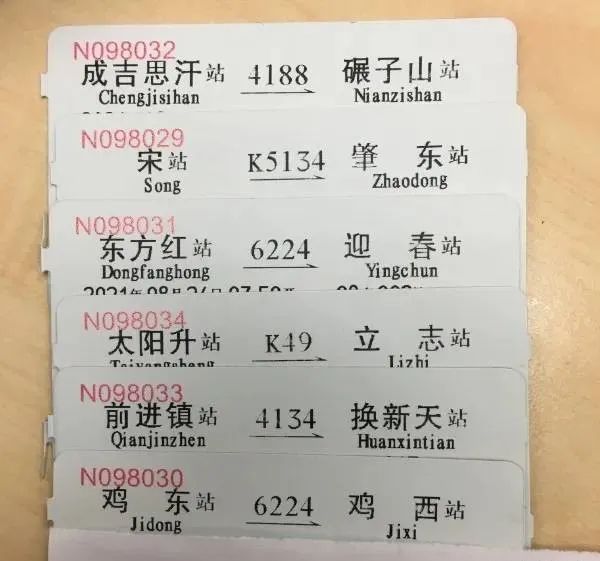 N098032
成吉思汗站 4188 碾子山站
Chengjisihan Nianzishan
N098029
宋站 K5134 肇东站
Song Zhaodong
N098031
东方红站 6224 迎春站
Dongfanghong Yingchun
2021年08月26日07:50开
N098034
太阳升站 K49 立志站
Taiyangsheng Lizhi
N098033
前进镇站 4134 换新天站
Qianjinzhen Huanxintian
N098030
鸡东站 6224 鸡西站
Jidong Jixi